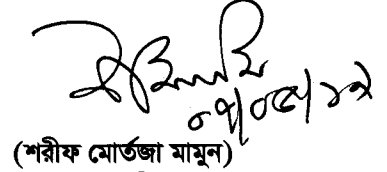 ০৭/০৫/১৯
(শরীফ মোর্তজা মামুন)